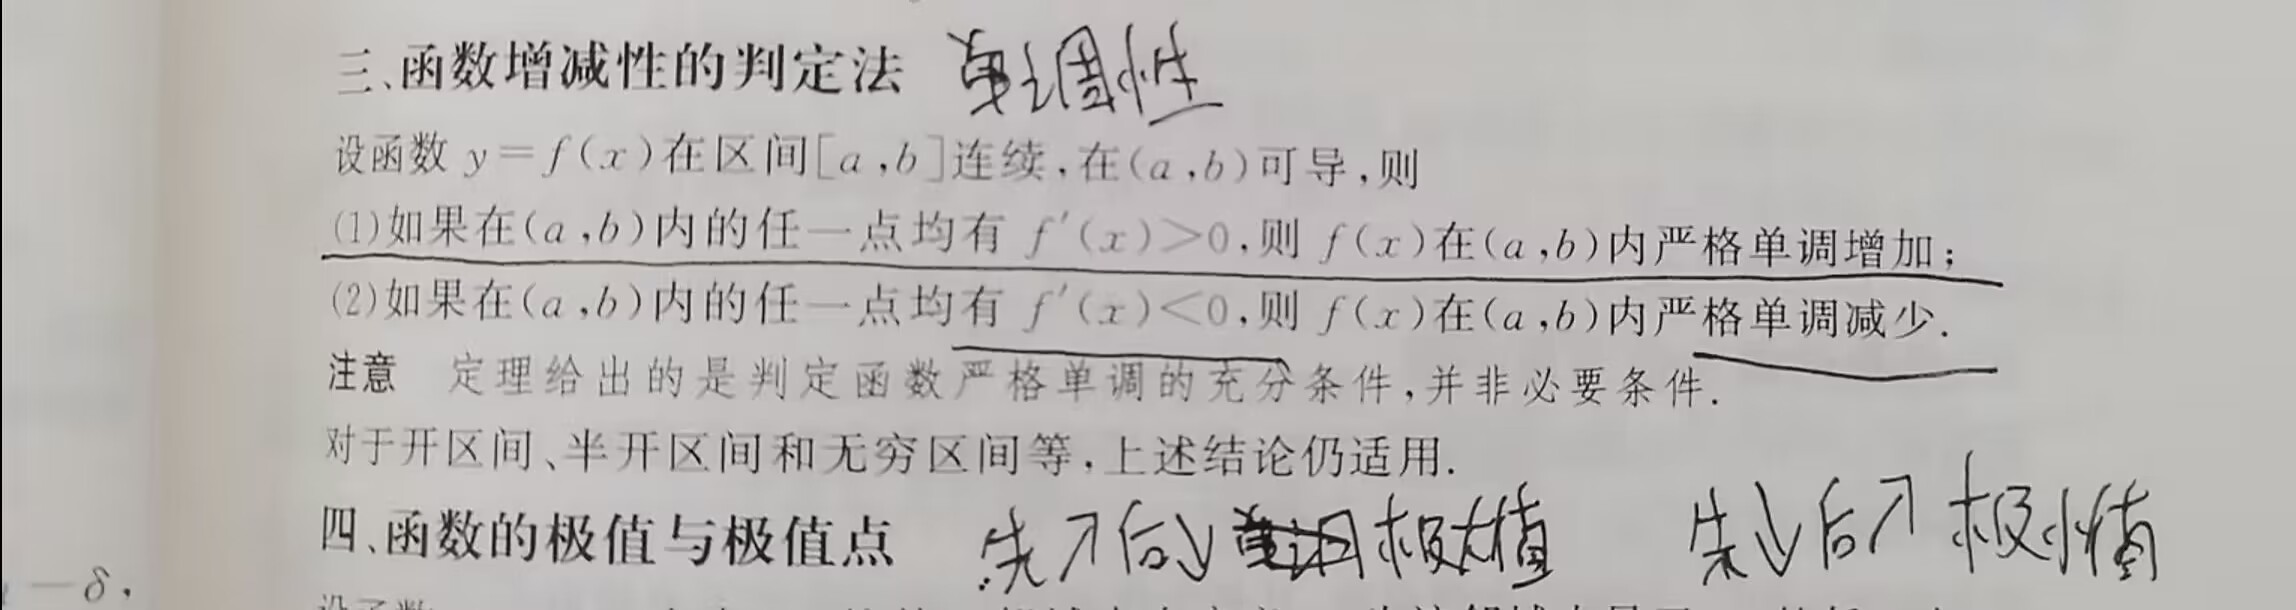 三、函数增减性的判定法 单调性
设函数 y=f(x)在区间[a,b]连续,在(a,b)可导,则
(1)如果在(a,b)内的任一点均有 f′(x)>0,则 f(x)在(a,b)内严格单调增加;
(2)如果在(a,b)内的任一点均有 f′(x)<0,则 f(x)在(a,b)内严格单调减少.
注意 定理给出的是判定函数严格单调的充分条件,并非必要条件.
对于开区间、半开区间和无穷区间等,上述结论仍适用.
四、函数的极值与极值点 先↗后↘极大值 先↘后↗极小值
—δ,
设函数